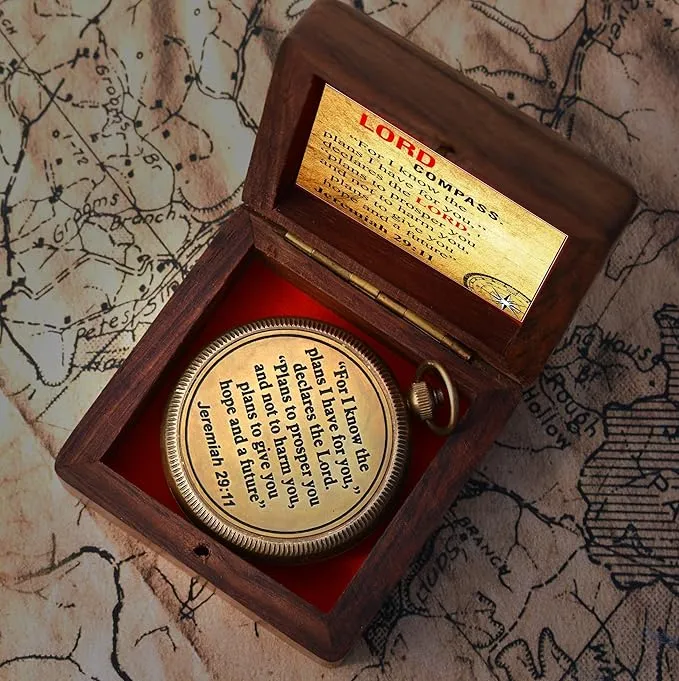 LORD
COMPASS
“For I know the
plans I have for you,”
declares the LORD.
“plans to prosper you
and not to harm you
plans to give you
hope and a future”
Jeremiah 29:11
“For I know the
plans I have for you,”
declares the Lord.
“Plans to prosper you
and not to harm you,
plans to give you
hope and a future”
Jeremiah 29:11
Grooms
Branch
Rough
Hollow
BRANCH